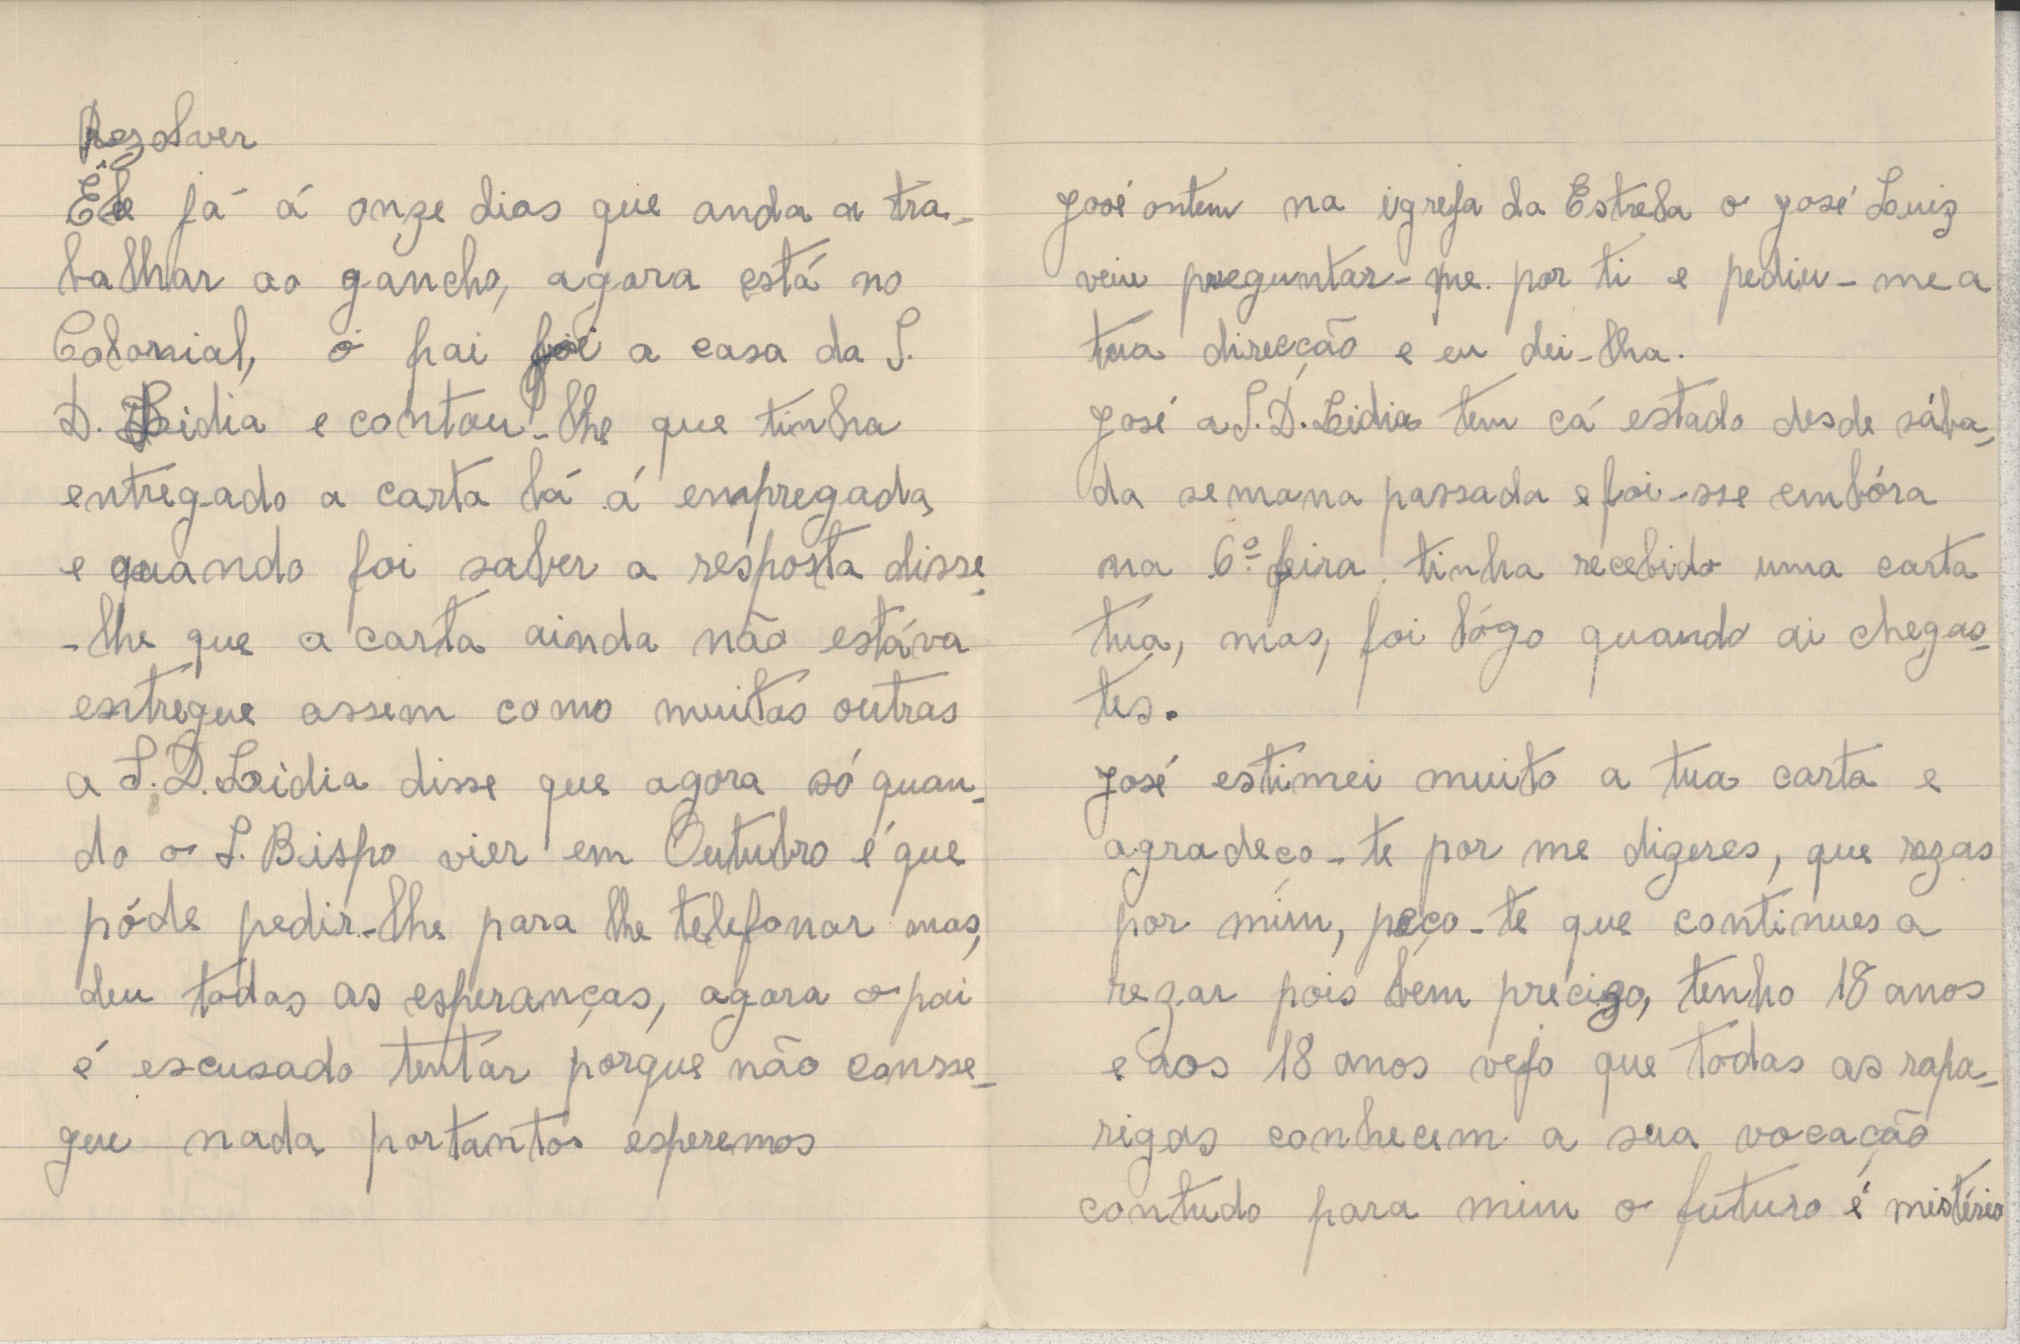 Rezolver
Êle já á onze dias que anda a tra-
balhar ao gancho, agora está no
Colonial, o pai foi a casa da S.
D. Lidia e contou-lhe que tinha
entregado a carta lá á empregada,
e quando foi saber a resposta disse-
-lhe que a carta ainda não estáva
entregue assem como muitas outras
a S. D. Lidia disse que agora só quan-
do o S. Bispo vier em Outubro é que
póde pedir-lhe para lhe telefonar mas,
deu todas as esperanças, agora o pai
é escusado tentar porque não consse-
gue nada portanto esperemos
José ontem na igreja da Estrela o José Luiz
veiu preguntar-me por ti e pediu-me a
tua direcção e eu dei-lha.
José a S. D. Lidia tem cá estado desde sába-
da semana passada e foi-sse embóra
na 6ª feira, tinha recebido uma carta
tua, mas, foi lógo quando ai chegas-
tes.
José estimei muito a tua carta e
agradeço-te por me dizeres, que rezas
por mim, peço-te que continues a
rezar pois bem précizo, tenho 18 anos
e aos 18 anos vejo que todas as rapa-
rigas conhecem a sua vocação
contudo para mim o futuro é mistério